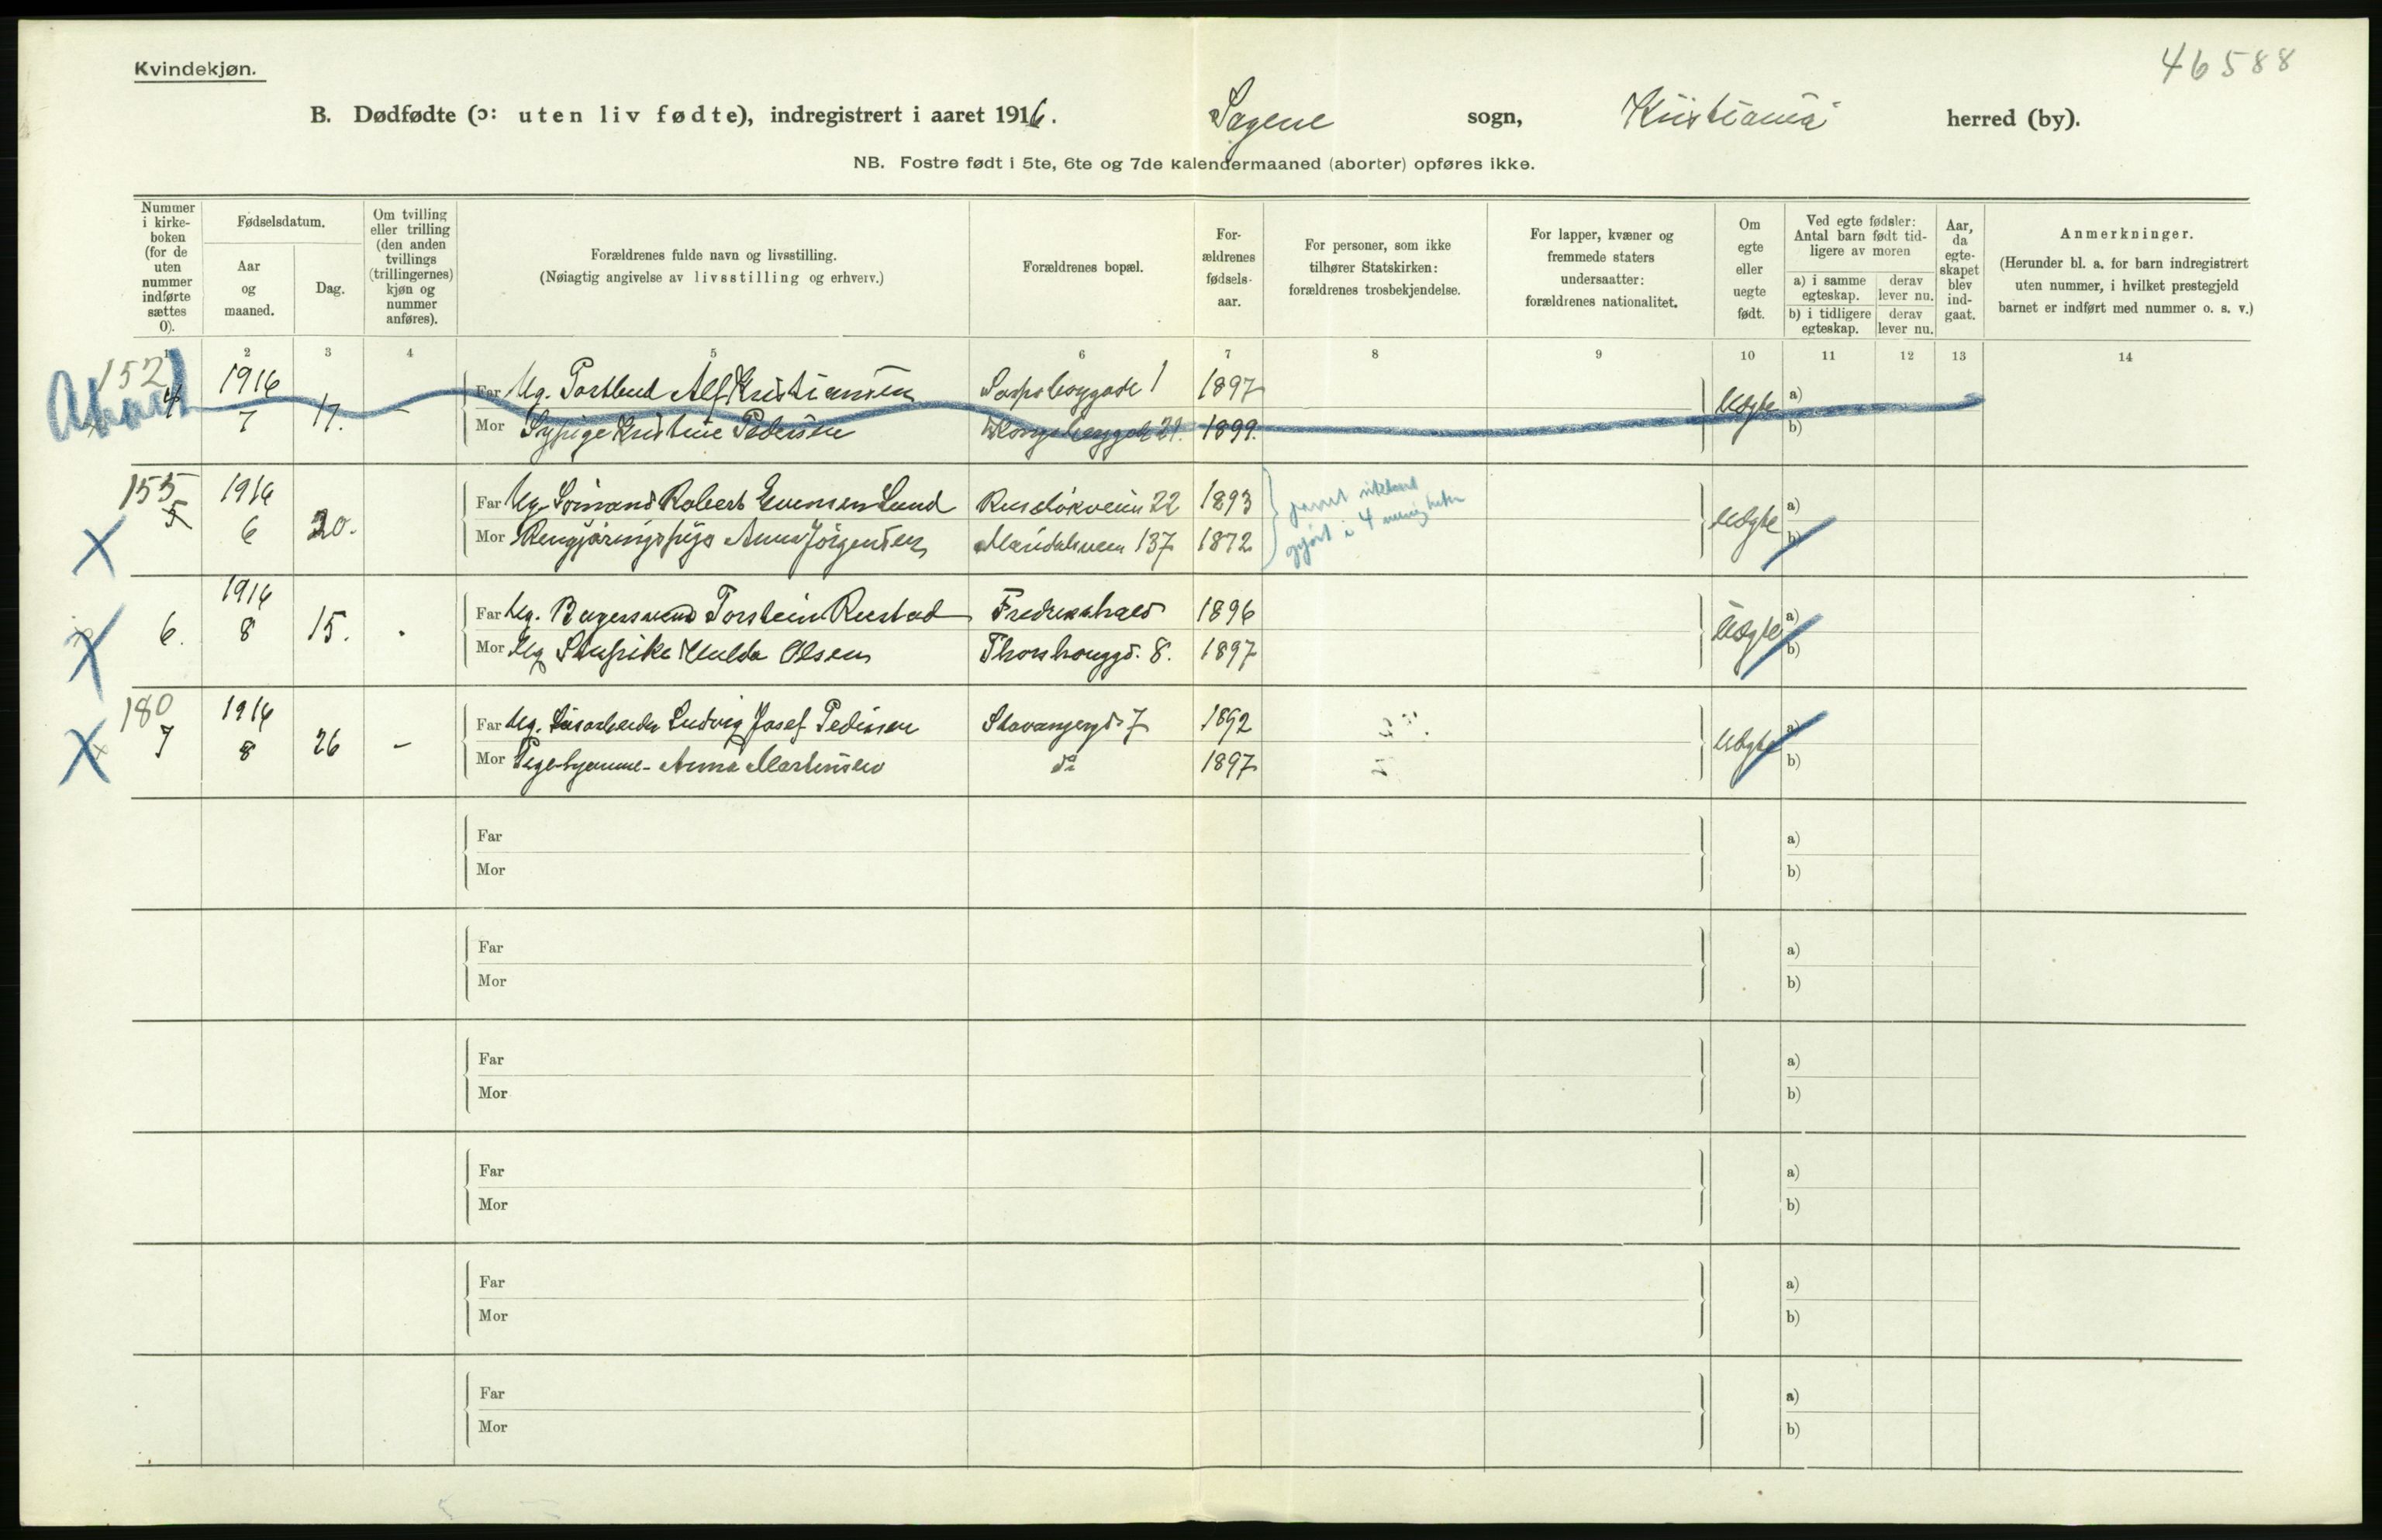 Kvindekjøn.
46588
B. Dødfødte (ɔ: uten liv fødte), indregistrert i aaret 1916. Sagene sogn, Kristiania herred (by).
NB. Fostre født i 5te, 6te og 7de kalendermaaned (aborter) opføres ikke.
Nummer i kirkeboken (for de uten nummer indførte sættes 0).
Fødselsdatum.
Aar og maaned.
Dag.
Om tvilling eller trilling (den anden tvillings (trillingernes) kjøn og nummer anføres).
Forældrenes fulde navn og livsstilling.
(Nøiagtig angivelse av livsstilling og erhverv.)
Forældrenes bopæl.
Forældrenes fødselsaar.
For personer, som ikke tilhører Statskirken: forældrenes trosbekjendelse.
For lapper, kvæner og fremmede staters undersaatter: forældrenes nationalitet.
Om egte eller uegte født.
Ved egte fødsler: Antal barn født tidligere av moren
a) i samme egteskap.
derav lever nu.
b) i tidligere egteskap.
derav lever nu.
Aar, da egteskapet blev indgaat.
Anmerkninger.
(Herunder bl. a. for barn indregistrert uten nummer, i hvilket prestegjeld barnet er indført med nummer o. s. v.)
1 2 3 4 5 6 7 8 9 10 11 12 13 14
152
Abort 4 1916 7 17. - Far Ug. Postbud Alf Kristiansen Sarpsborggade 1 1897 Uegte a)
Mor Sypige Kristine Pedersen Kongsberggade 21. 1899. b)
155
5 1916 6 20. Far Ug. Sömand Robert Evensen Lund Ruselökveien 22 1893 Uegte a)
Mor Rengjöringspige Anna Jörgensen Maridalsveien 137 1872 b)
gjort i 4
6. 1916 8 15. Far Ug. Bagersvend Torstein Rustad Fredrikshald 1896 Uegte a)
Mor Ug Hulda Olsen Thorshauggd. 8. 1897 b)
180
7 1916 8 26 - Far Ug. Ludvig Josef Pedersen Stavangergd 7 1892 Uegte a)
Mor Anna Martinsen do 1897 b)
Far a)
Mor b)
Far a)
Mor b)
Far a)
Mor b)
Far a)
Mor b)
Far a)
Mor b)
Far a)
Mor b)